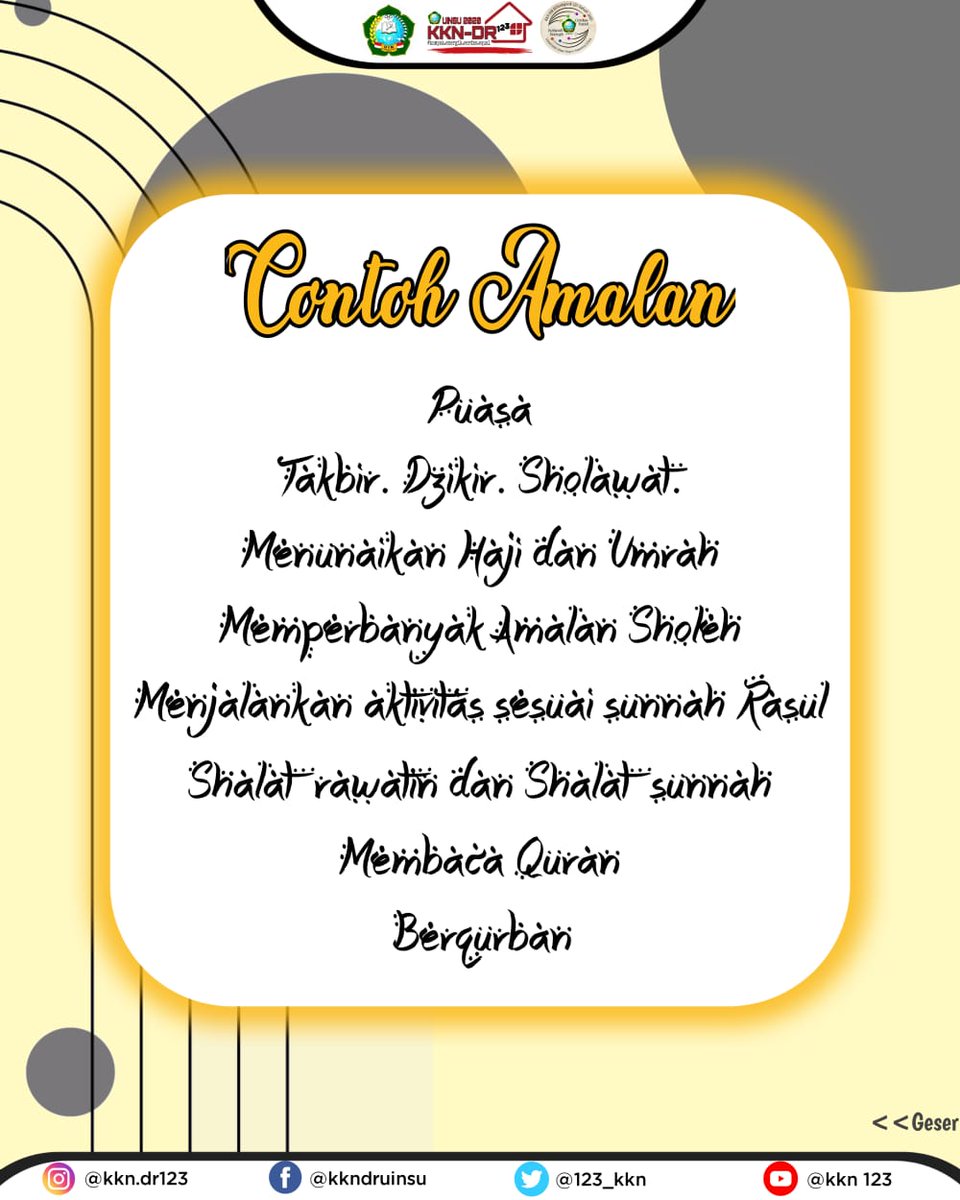 UINSU 2020
KKN-DR 123
Contoh Amalan
Puasa
Takbir. Dzikir. Sholawat.
Menunaikan Haji dan Umrah
Memperbanyak Amalan Sholeh
Menjalankan aktivitas sesuai sunnah Rasul
Shalat rawatin dan Shalat sunnah
Membaca Quran
Berqurban
<<Geser
@kkn.dr123
@kkndruinsu
@123_kkn
@kkn 123